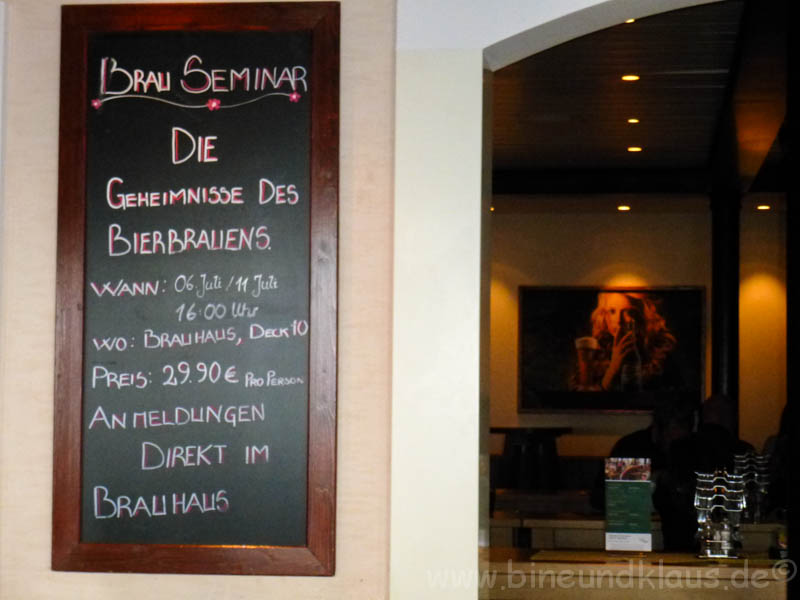 BRAU SEMINAR
DIE
GEHEIMNISSE DES
BIERBRAUENS.
WANN: 06. Juli / 11 Juli
16:00 Uhr
WO: BRAUHAUS, DECK 10
PREIS: 29.90 € PRO PERSON
ANMELDUNGEN
DIREKT IM
BRAUHAUS
www.bineundklaus.de©